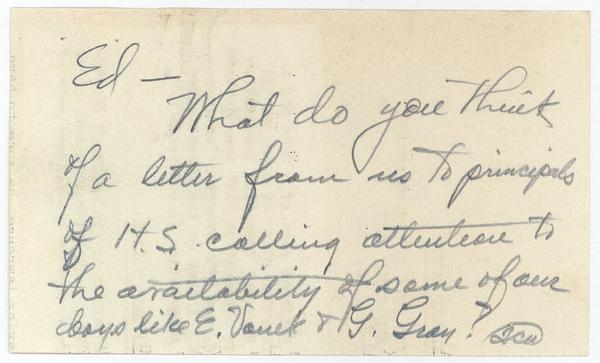 Ed —
What do you think
of a letter from us to principals
of H.S. calling attention to
the availability of some of our
boys like E. Vanek & G. Gray?